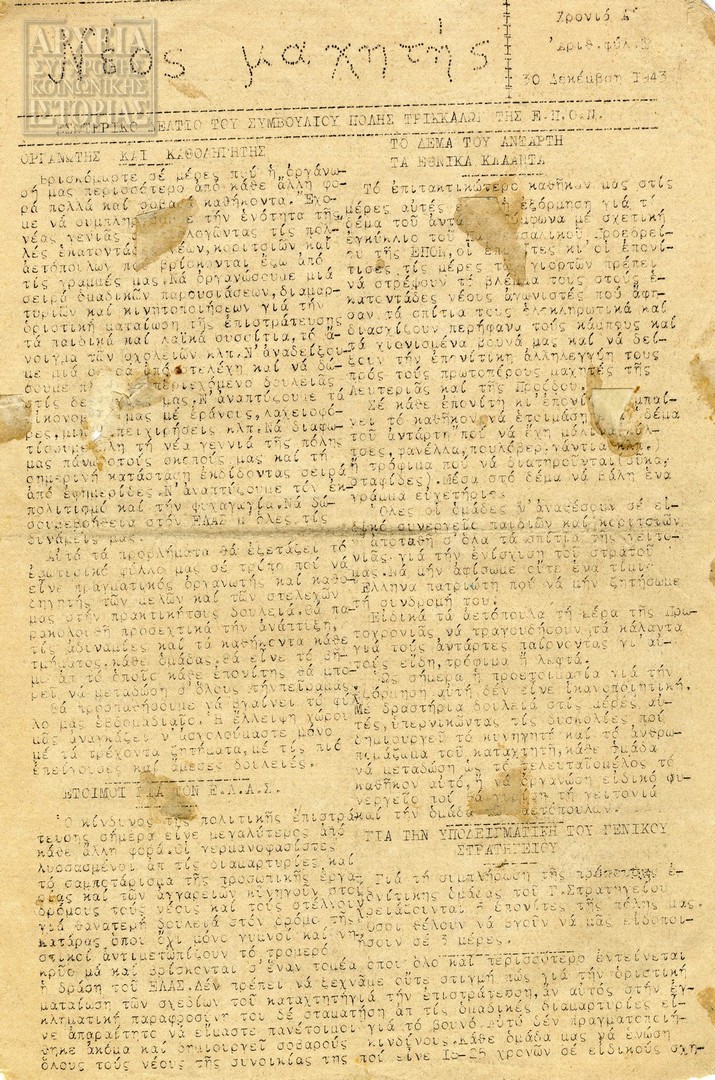 ΑΡΧΕΙΑ
ΣΥΓΧΡΟΝΗΣ
ΚΟΙΝΩΝΙΚΗΣ
ΙΣΤΟΡΙΑΣ
Νέος μαχητής
Χρονιά Α'
Ἀριθ.φύλ.
30 Δεκέμβρη 1943
ΔΕΛΤΙΟ ΤΟΥ ΣΥΜΒΟΥΛΙΟΥ ΠΟΛΗΣ ΤΡΙΚΚΑΛΩΝ ΤΗΣ Ε.Π.Ο.Ν.
ΟΡΓΑΝΩΤΗΣ ΚΑΙ ΚΑΘΟΔΗΓΗΤΗΣ
Βρισκόμαστε σέ μέρες πού ἡ ὀργάνω-
σή μας περισσότερο ἀπό κάθε ἄλλη φο-
ρά πολλά καί σοβαρά καθήκοντα. Ἔχο-
με νά τήν ἑνότητα τῆς
νέας γενιᾶς τίς πολ-
λές ἑκατοντάδες νέων,κοριτσιῶν καί
ἀετόπουλων πού βρίσκονται ἔξω ἀπό
τίς γραμμές μας.Νά ὀργανώσουμε μιά
σειρά ὁμαδικῶν παρουσιάσεων,διαμαρ-
τυριῶν καί κινητοποιήσεων γιά τήν
ὁριστική ματαίωση τῆς ἐπιστράτευσης
τά παιδικά καί λαϊκά συσσίτια,τό ἄ-
νοιγμα τῶν σχολείων κλπ.Ν'ἀναδείξου-
με μιά στελέχη καί νά δώ-
σουμε περιεχόμενο δουλειᾶς
στίς μας.Ν'ἀναπτύξουμε τά
οἰκονομικά μας μέ ἐράνους,λαχειοφό-
ρες, ἐπιχειρήσεις κλπ.Νά διαφω-
τίσουμε τή νέα γενιά τῆς πόλης
μας πάνω στούς σκοπούς μας καί τή
σημερινή κατάσταση ἐκδίδοντας σειρά
ἀπό ἐφημερίδες.Ν'ἀναπτύξουμε τόν ἐκ-
πολιτισμό καί τήν ψυχαγωγία.Νά δώ-
σουμε βοήθεια στόν ΕΛΑΣ μ'ὅλες τίς
δυνάμεις μας.
Αὐτά τά προβλήματα θά ἐξετάζει τό
ἐσωτερικό φύλλο μας σέ τρόπο πού νά
εἶνε πραγματικός ὀργανωτής καί καθο-
δηγητής τῶν μελῶν καί τῶν στελεχῶν
μας στήν πρακτική τους δουλειά.Θά πα-
ρακολουθῆ προσεχτικά τήν ἀνάπτυξη,
τίς ἀδυναμίες καί τά καθήκοντα κάθε
τμήματος,κάθε ὁμάδας.Θά εἶνε τό βῆ-
μα ἀπ τό ὁποῖο κάθε ἐπονίτης θά μπο-
ρεῖ νά μεταδώση σ'ὅλους τήν πεῖρα μας.
Θά προσπαθήσουμε νά βγαίνει τό φύλ-
λο μας ἑβδομαδιαῖο.Ἡ ἔλλειψη χώρου
μᾶς ἀναγκάζει ν'ἀσχολούμαστε μόνο
μέ τά τρέχοντα ζητήματα,μέ τίς πιό
ἐπείγουσες καί ἄμεσες δουλειές.
ΕΤΟΙΜΟΙ ΓΙΑ ΤΟΝ Ε.Λ.Α.Σ.
Ὁ κίνδυνος τῆς πολιτικῆς ἐπιστρά-
τευσης σήμερα εἶνε μεγαλύτερος ἀπό
κάθε ἄλλη φορά.Οἱ γερμανοφασίστες
λυσσασμένοι ἀπ τίς διαμαρτυρίες καί
τό σαμποτάρισμα τῆς προσωπικῆς ἐργα-
σίας καί τῶν ἀγγαρειῶν κυνηγοῦν στούς
δρόμους τούς νέους καί τούς στέλλουν
γιά θανατερή δουλειά στόν δρόμο τῆς
Κατάρας ὅπου ὄχι μόνο γυμνοί καί νη-
στικοί ἀντιμετωπίζουν τό τρομερό
κρύο μά καί βρίσκονται σ'ἕναν τομέα ὅπου ὅλο καί περισσότερο ἐντείνεται
ἡ δράση τοῦ ΕΛΑΣ.Δέν πρέπει νά ξεχνᾶμε οὔτε στιγμή πώς γιά τήν ὁριστική
ματαίωση τῶν σχεδίων τοῦ καταχτητῆ γιά τήν ἐπιστράτευση,ἄν αὐτός στήν ἐγ-
κληματική παραφροσύνη του δέ σταματήση ἀπ τίς ὁμαδικές διαμαρτυρίες εἶ-
νε ἀπαραίτητο νά εἴμαστε πανέτοιμοι γιά τό βουνό.Αὐτό δέν πραγματοποιή-
θηκε ἀκόμα καί δημιουργεῖ σοβαρούς κινδύνους.Κάθε ὁμάδα μας νά ἑνώση
ὅλους τούς νέους τῆς συνοικίας της πού εἶνε 15-25 χρονῶν σέ εἰδικούς σχη-
ΤΟ ΔΕΜΑ ΤΟΥ ΑΝΤΑΡΤΗ
ΤΑ ΕΘΝΙΚΑ ΚΑΛΑΝΤΑ
Τό ἐπιτακτικώτερο καθῆκον μας στίς
μέρες αὐτές ἡ ἐξόρμηση γιά τό
δέμα τοῦ σύμφωνα μέ σχετική
ἐγκύκλιο τοῦ Προεδρεί-
ου τῆς ΕΠΟΝ,οἱ ἐπονίτες κι'οἱ ἐπονί-
τισες τίς μέρες τῶν γιορτῶν πρέπει
νά στρέψουν τό βλέμμα τους στούς ἑ-
κατοντάδες νέους ἀγωνιστές πού ἄφη-
σαν τά σπίτια τους ὁλοκληρωτικά καί
διασχίζουν περήφανα τούς κάμπους καί
τά χιονισμένα βουνά μας καί νά δεί-
ξουν τήν ἐπονίτικη ἀλληλεγγύη τους
πρός τούς πρωτοπόρους μαχητές τῆς
Λευτεριᾶς καί τῆς Προόδου.
Σέ κάθε ἐπονίτη κι'ἐπονίτισα μπαί-
νει τό καθῆκον νά ἑτοιμάση δέμα
τοῦ ἀντάρτη πού νά ἔχη μάλλινα(κάλ-
τσες,φανέλλα,πουλόβερ,γάντια κλπ.)
ἤ τρόφιμα πού νά διατηροῦνται(σῦκα,
σταφίδες).Μέσα στό δέμα νά βάλη ἕνα
γράμμα εὐχετήριο.
Ὅλες οἱ ὁμάδες ν'ἀναθέσουν σέ εἰ-
δικό συνεργεῖο παιδιῶν καί κοριτσιῶν
ν'ἀποταθῆ σ'ὅλα τά σπίτια τῆς γειτο-
νιᾶς γιά τήν ἐνίσχυση τοῦ στρατοῦ
μας.Νά μήν ἀφίσωμε οὔτε ἕνα τίμιο
Ἕλληνα πατριώτη πού νά μήν ζητήσωμε
τή συνδρομή του.
Εἰδικά τά ἀετόπουλα τή μέρα τῆς Πρω-
τοχρονιᾶς νά τραγουδήσουν τά κάλαντα
γιά τούς ἀντάρτες παίρνοντας γι'αὐ-
τούς εἴδη,τρόφιμα ἤ λεφτά.
Ὥς σήμερα ἡ προετοιμασία γιά τήν
ἐξόρμηση αὐτή δέν εἶνε ἱκανοποιητική.
Μέ δραστήρια δουλειά στίς μέρες αὐ-
τές,ὑπερνικώντας τίς δυσκολίες πού
δημιουργεῖ τό κυνηγητό καί τό ἀνθρω-
πομάζωμα τοῦ καταχτητῆ,κάθε ὁμάδα
νά μεταδώση ὡς τό τελευταῖο μέλος τό
καθῆκον αὐτό,ἤ νά ὀργανώση εἰδικό συ-
νεργεῖο πού νά τή γειτονιά
καί τήν ὁμάδα ἀετόπουλων.
ΓΙΑ ΤΗΝ ΥΠΟΔΕΙΓΜΑΤΙΚΗ ΤΟΥ ΓΕΝΙΚΟΥ
ΣΤΡΑΤΗΓΕΙΟΥ
Γιά τή συμπλήρωση τῆς πρότυπης ἐ-
πονίτικης ὁμάδας τοῦ Γ.Στρατηγείου
χρειάζονται ἐπονίτες τῆς πόλης μας.
Ὅσοι θέλουν νά βγοῦν νά μᾶς εἰδοποι-
ήσουν σέ 3 μέρες.